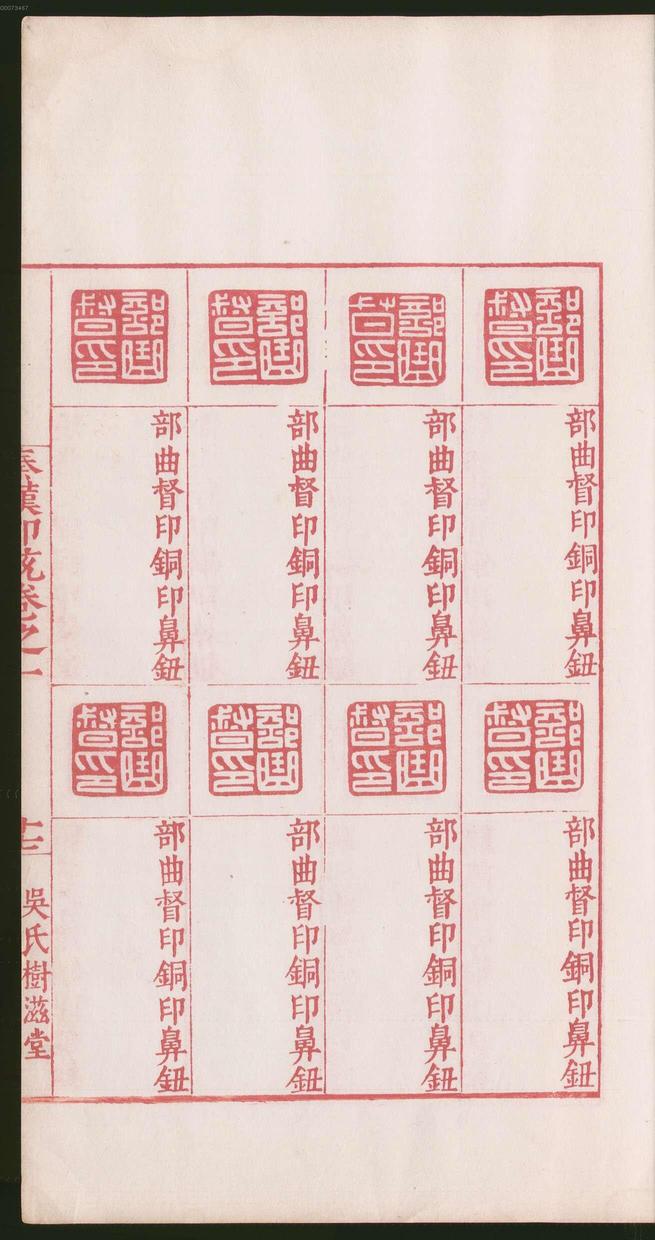 00073467
部曲督印
部曲督印銅印鼻鈕
部曲督印
部曲督印銅印鼻鈕
部曲督印
部曲督印銅印鼻鈕
部曲督印
部曲督印銅印鼻鈕
部曲督印
部曲督印銅印鼻鈕
部曲督印
部曲督印銅印鼻鈕
部曲督印
部曲督印銅印鼻鈕
部曲督印
部曲督印銅印鼻鈕
秦漢印范卷之一
吳氏樹滋堂